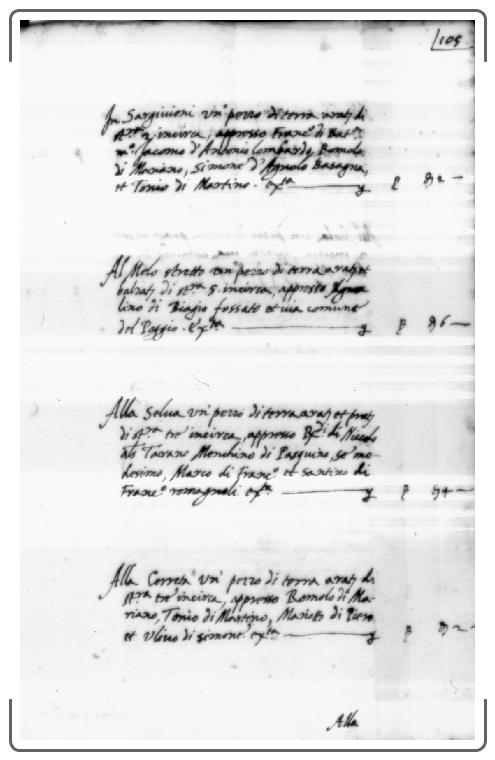 105
In Sargivieni un' pezzo di terra arat.
st.ra 2 incirca, appresso Franc.o di Bat.a
m.o Jacomo d'Antonio Lombardo, Romolo
di Mariano, Simone d'Agnolo Basagna,
et Tonio di Martino. ex.ta
2 —
Al Melo stretto un' pezzo di terra arat. et
balzat. di st.ra 5. incirca, appresso Agno-
lino di Biagio fossato et via comune
del Poggio. Ex.ta
6 —
Alla Selva un' pezzo di terra arat. et prat.
di st.ra tre incirca, appresso di Niccolo
als Menchino di Pasquino, se me-
desimo, Marco di Franc.o et Santino di
Franc.o romagnoli. ex.ta
4 —
Alla Correta un' pezzo di terra arat. di
st.ra tre incirca, appresso Romolo di Ma-
riano, Tonio di Martino, Mariotto di Piero
et Ulivo di Simone. ex.ta
2 —
Alla